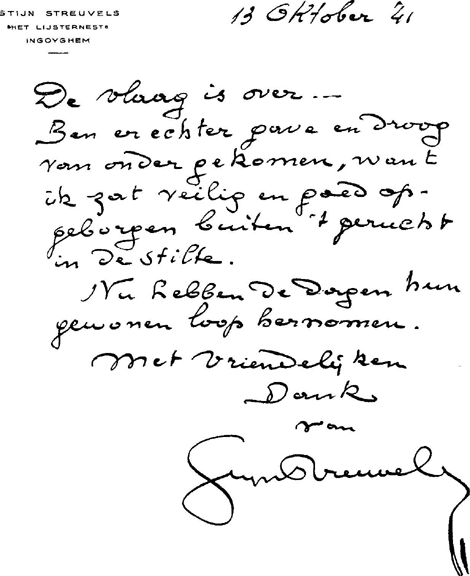 STIJN STREUVELS
"HET LIJSTERNEST"
INGOYGHEM
13 Oktober '41
De vlaag is over ---
Ben er echter gave en droog
van onder gekomen, want
ik zat veilig en goed op-
geborgen buiten 't gerucht
in de stilte.
Nu hebben de dagen hun
gewonen loop hernomen.
Met vriendelijken
Dank
van
Stijn Streuvels